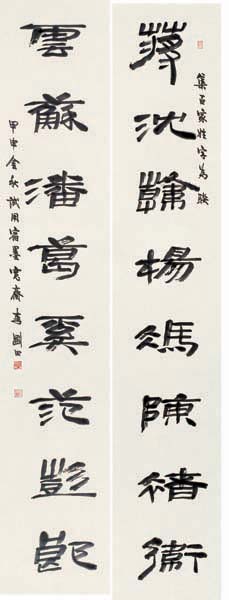 蔣沈韓楊馮陳褚衛
集百家姓字為聯
雲蘇潘葛奚范彭郎
甲申金秋試用宿墨